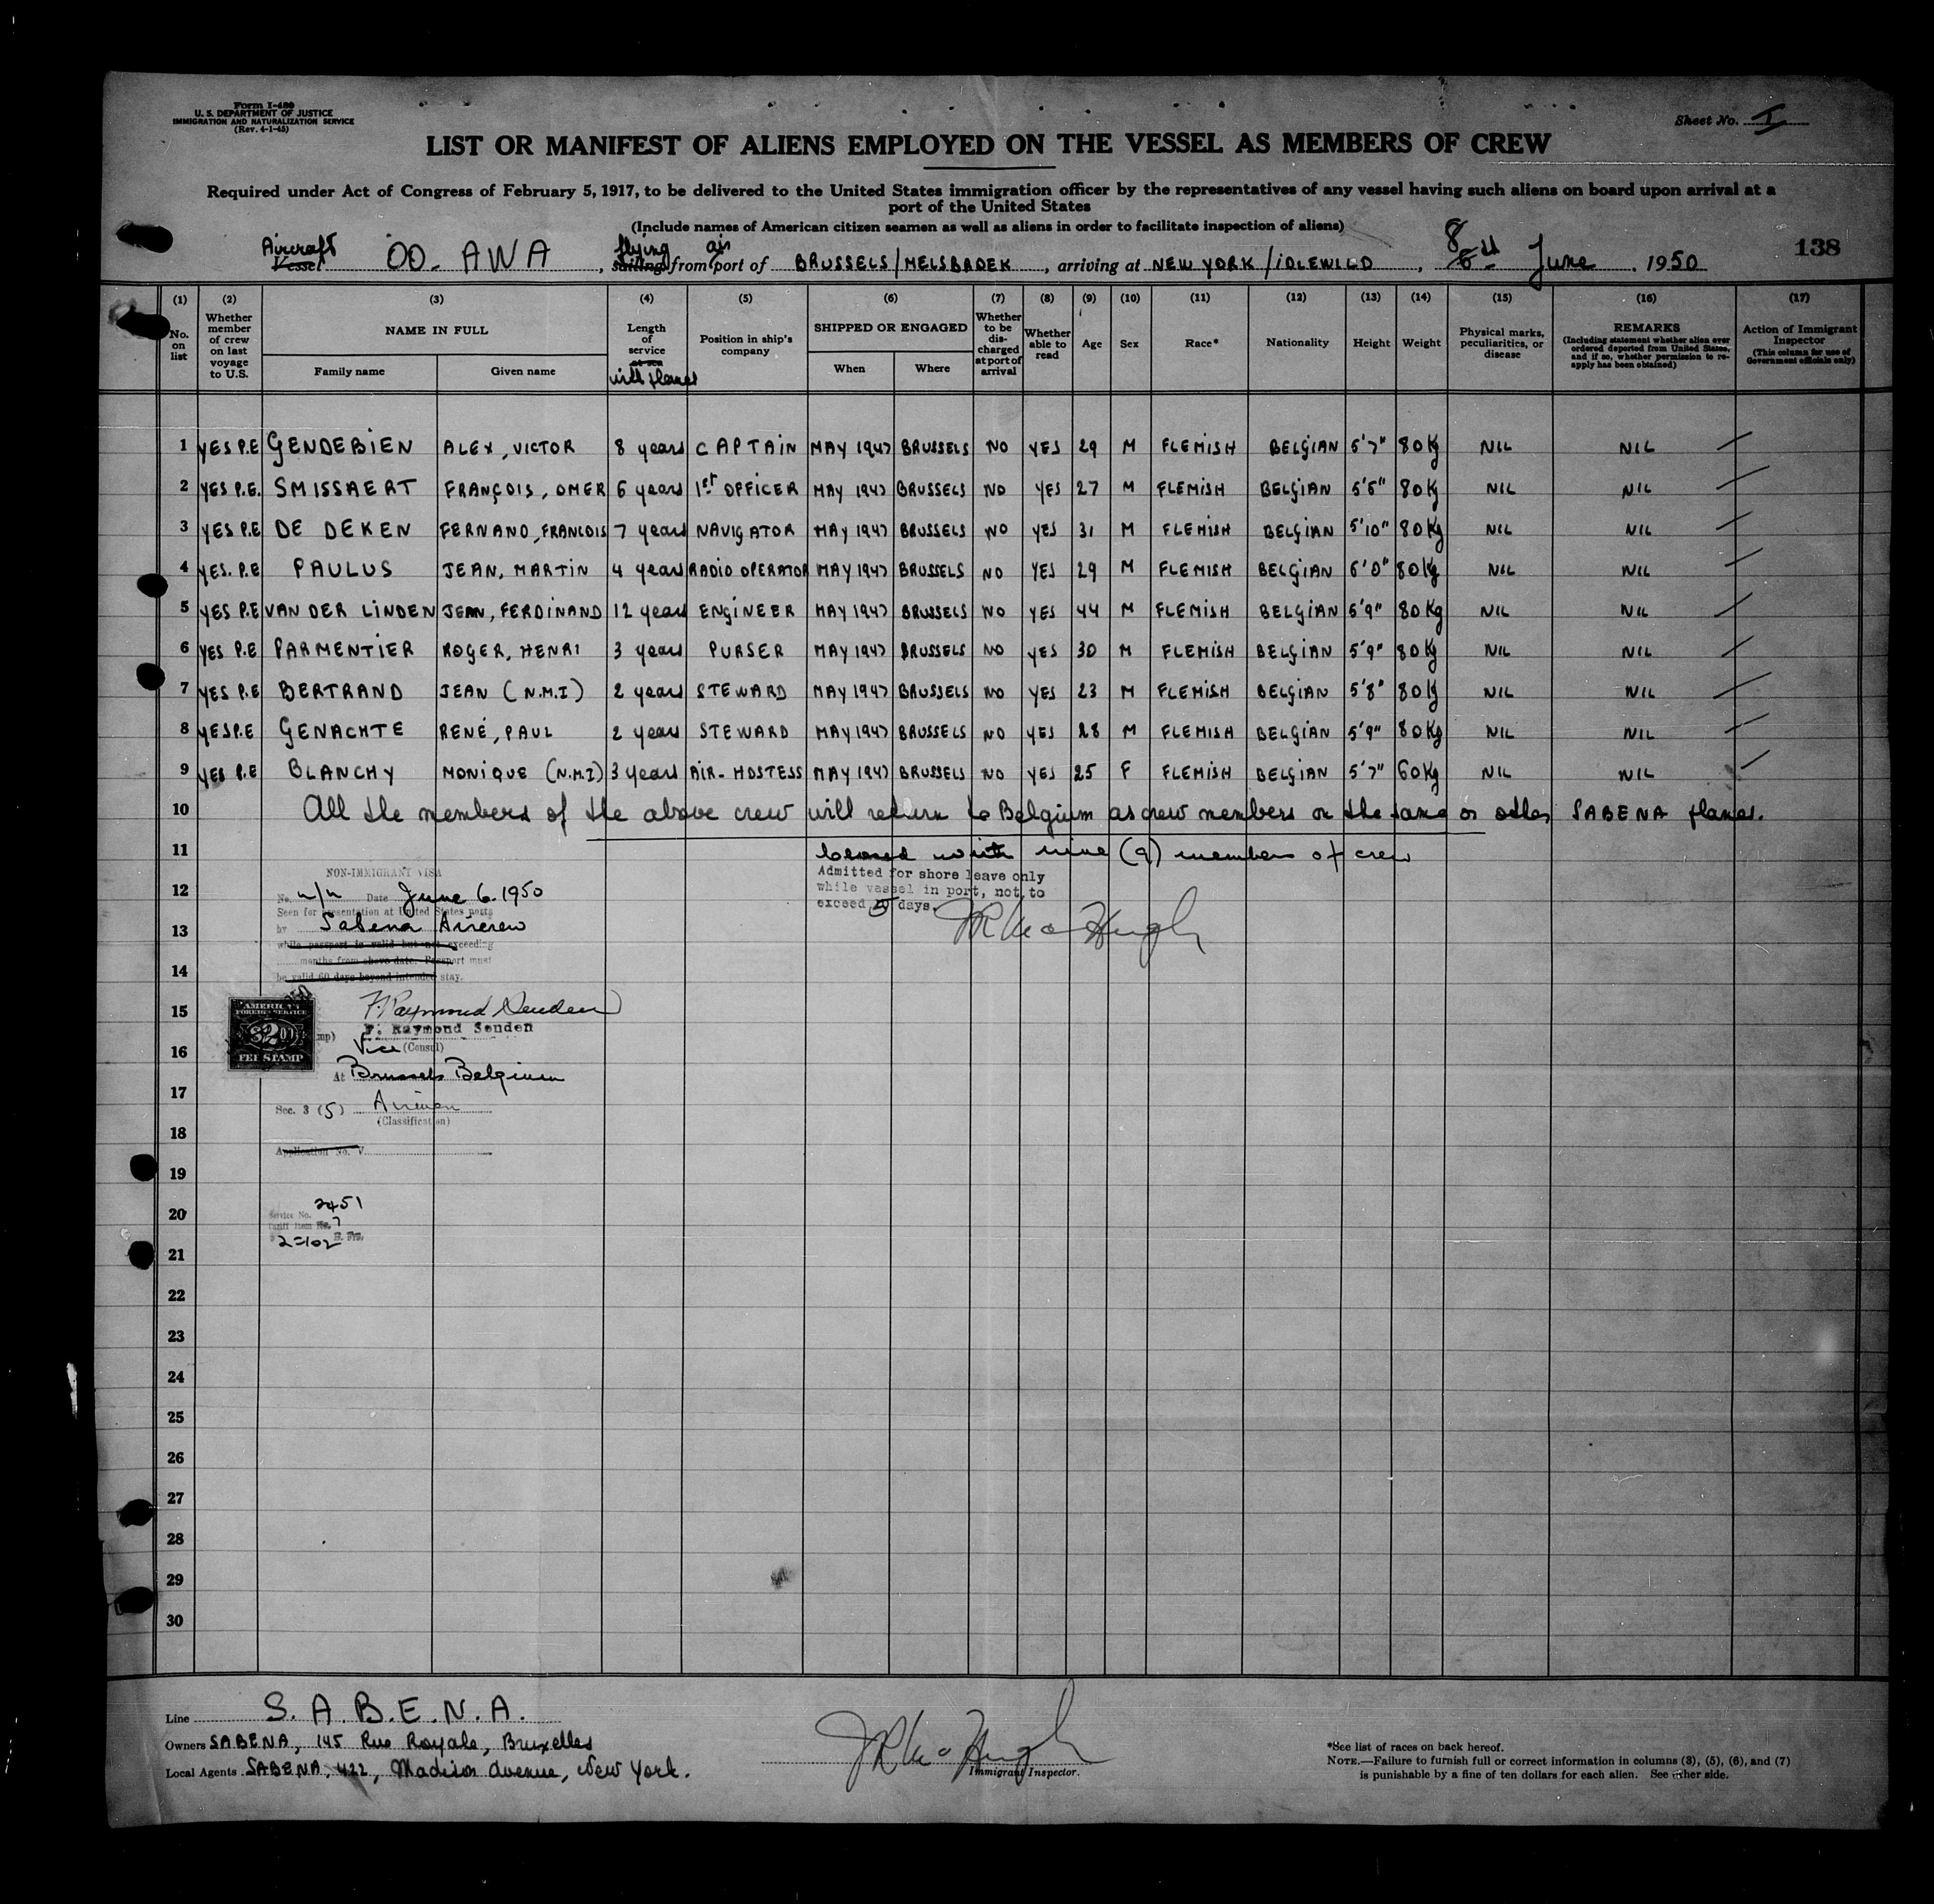 Form I-480
U. S. DEPARTMENT OF JUSTICE
IMMIGRATION AND NATURALIZATION SERVICE
(Rev. 4-1-45)
Sheet No. I
LIST OR MANIFEST OF ALIENS EMPLOYED ON THE VESSEL AS MEMBERS OF CREW
Required under Act of Congress of February 5, 1917, to be delivered to the United States immigration officer by the representatives of any vessel having such aliens on board upon arrival at a
port of the United States
(Include names of American citizen seamen as well as aliens in order to facilitate inspection of aliens)
Aircraft flying air
Vessel OO-AWA, sailing from port of BRUSSELS/MELSBROEK, arriving at NEW YORK/IDLEWILD, 8 June, 1950 138
(1) (2) (3) (4) (5) (6) (7) (8) (9) (10) (11) (12) (13) (14) (15) (16) (17)
No. on list
Whether member of crew on last voyage to U.S.
NAME IN FULL
Family name Given name
Length of service at sea with planes
Position in ship's company
SHIPPED OR ENGAGED
When Where
Whether to be discharged at port of arrival
Whether able to read
Age
Sex
Race*
Nationality
Height
Weight
Physical marks, peculiarities, or disease
REMARKS
(Including statement whether alien ever ordered deported from United States, and if so, whether permission to reapply has been obtained)
Action of Immigrant Inspector
(This column for use of Government officials only)
1 YES P.E GENDEBIEN ALEX, VICTOR 8 years CAPTAIN MAY 1947 BRUSSELS NO YES 29 M FLEMISH BELGIAN 5'7" 80 Kg NIL NIL
2 YES P.E. SMISSAERT FRANÇOIS, OMER 6 years 1st OFFICER MAY 1947 BRUSSELS NO YES 27 M FLEMISH BELGIAN 5'5" 80 Kg NIL NIL
3 YES P.E DE DEKEN FERNAND, FRANCOIS 7 years NAVIGATOR MAY 1947 BRUSSELS NO YES 31 M FLEMISH BELGIAN 5'10" 80 Kg NIL NIL
4 YES. P.E PAULUS JEAN, MARTIN 4 years RADIO OPERATOR MAY 1947 BRUSSELS NO YES 29 M FLEMISH BELGIAN 6'0" 80 Kg NIL NIL
5 YES P.E VAN DER LINDEN JEAN, FERDINAND 12 years ENGINEER MAY 1947 BRUSSELS NO YES 44 M FLEMISH BELGIAN 5'9" 80 Kg NIL NIL
6 YES P.E PARMENTIER ROGER, HENRI 3 years PURSER MAY 1947 BRUSSELS NO YES 30 M FLEMISH BELGIAN 5'9" 80 Kg NIL NIL
7 YES P.E BERTRAND JEAN (N.M.I) 2 years STEWARD MAY 1947 BRUSSELS NO YES 23 M FLEMISH BELGIAN 5'8" 80 Kg NIL NIL
8 YES P.E GENACHTE RENÉ, PAUL 2 years STEWARD MAY 1947 BRUSSELS NO YES 28 M FLEMISH BELGIAN 5'9" 80 Kg NIL NIL
9 YES P.E BLANCHY MONIQUE (N.M.I) 3 years AIR-HOSTESS MAY 1947 BRUSSELS NO YES 25 F FLEMISH BELGIAN 5'7" 60 Kg NIL NIL
10 All the members of the above crew will return to Belgium as crew members on the same or other SABENA planes.
11 closed with nine (9) members of crew
Admitted for shore leave only
12 while vessel in port, not to
exceed days.
JR McHugh
NON-IMMIGRANT VISA
No. n/n Date June 6. 1950
Seen for presentation at United States ports
13 by Sabena Aircrew
while passport is valid but not exceeding
months from above date. Passport must
14 be valid 60 days beyond intended stay.
AMERICAN
FOREIGN SERVICE
$2.00
FEE STAMP
15 F. Raymond Senden
F. Raymond Senden
16 Vice (Consul)
At Brussels Belgium
17
Sec. 3 (5) Airmen
(Classification)
18
Application No. V
19
20 Service No. 2451
Tariff Item No. 7
2=102 B. Frs.
21
22
23
24
25
26
27
28
29
30
Line S.A.B.E.N.A.
Owners SABENA, 145 Rue Royale, Bruxelles
Local Agents SABENA, 422, Madison Avenue, New York.
JR McHugh
Immigrant Inspector.
*See list of races on back hereof.
NOTE.—Failure to furnish full or correct information in columns (3), (5), (6), and (7)
is punishable by a fine of ten dollars for each alien. See other side.